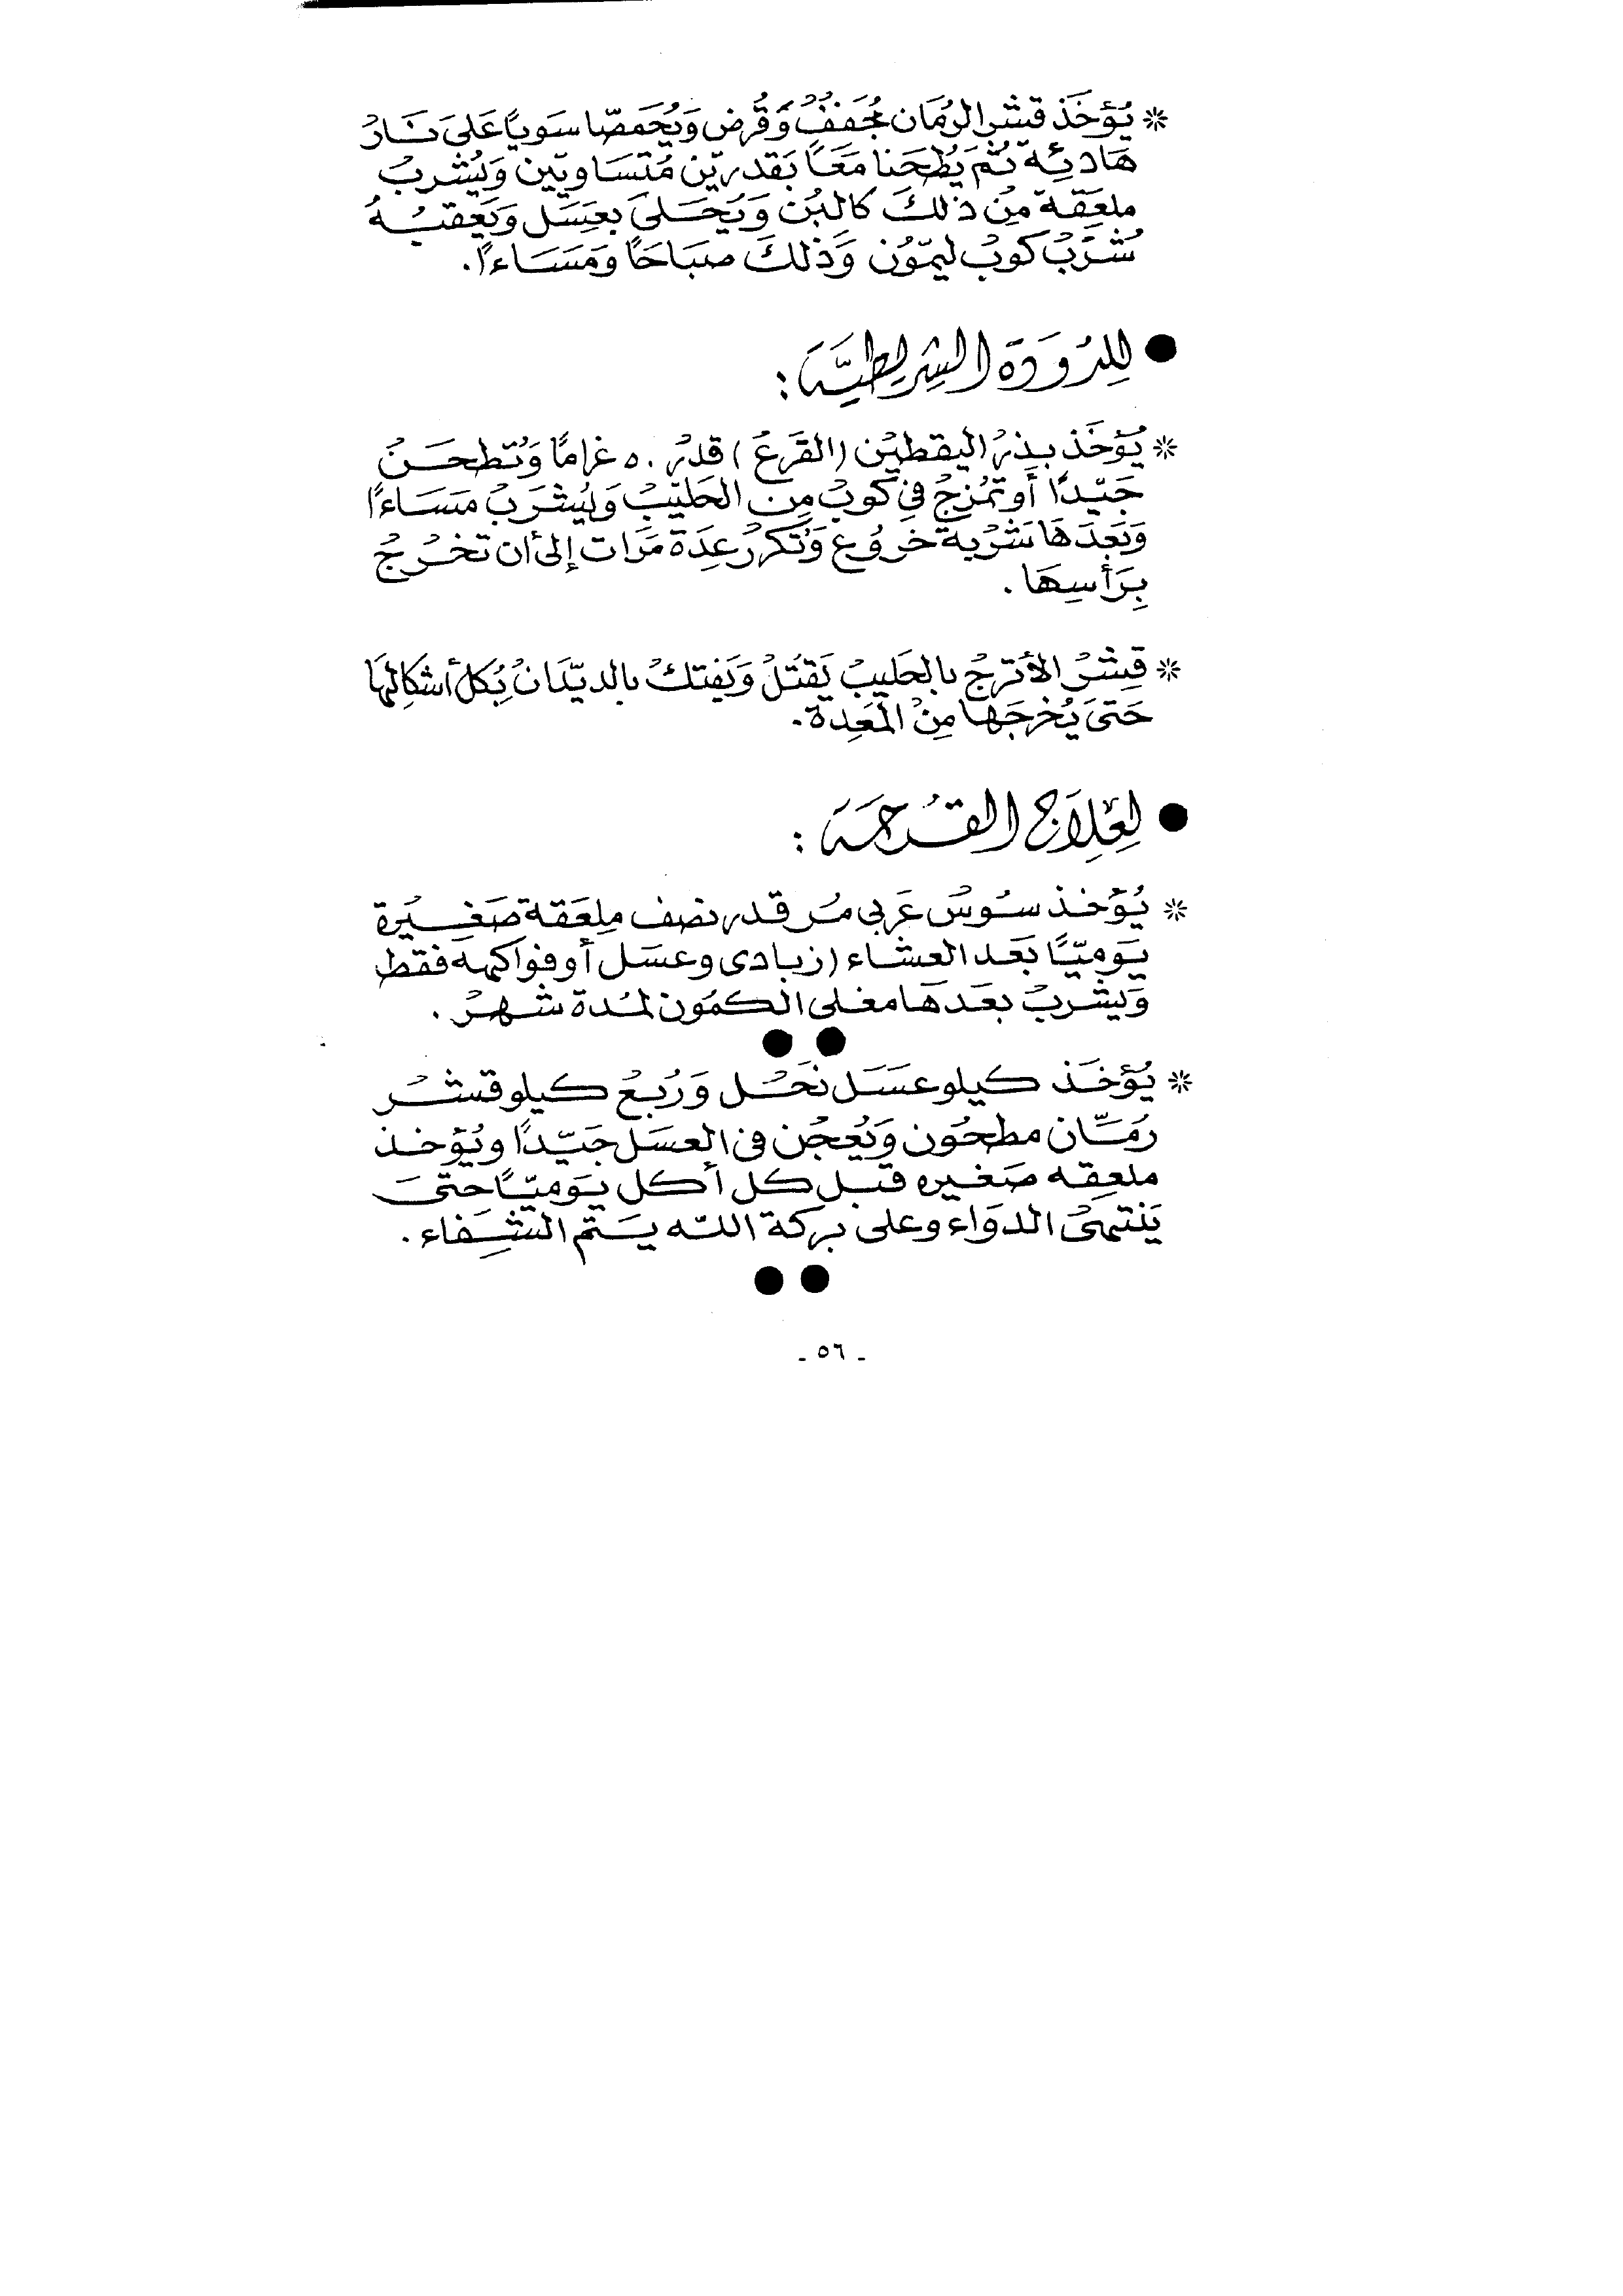 * يُؤخَذ قشر الرُمَان مُجَفَفْ وَقُرض وَيُحَمصّا سَوياً عَلىَ نَارْ
هَادئِة ثُمَّ يُطحَنا مَعَاً بَقدريّن مُتسَاوييّن وَيُشربْ
ملعَقة مِنْ ذلكَ كالبُن وَيُحَلىَ بعَسَل وَيَعقبُهُ
شُرْبْ كوُبْ ليمّوُن وَذلكَ صبَاحَاً وَمَسَاءاً.
● لِلِدُودَة الشِريطيَّة :
* يُؤخَذ بذرْ اليقطيْن (القَرَعْ) قدرْ ٥٠ غرامًا وَتُطحَنْ
جَيّدًا أو تمُزجْ في كوُبْ مِن الحَليّبْ وَيُشرَبْ مَسَاءاً
وَبَعَدهَا شَرْبة خرْوُع وَتُكررْ عِدَة مَرَات إلى أن تخرُجْ
بِرَأسِهَا .
* قِشرْ الأترجْ بالحَليبْ يَقتُلْ وَيَفتكْ بالديّدَانْ بُكِل أشكالِهَا
حَتىَ يُخرجَها مِنْ المَعِدة.
● لِعِلاَج القُرحَة :
* يُؤخذ سُوسْ عَربى مُر قدر نصف مِلعَقة صَغيُرة
يَومِيّاً بَعَد العشاء (زبادى وعسَل أو فواكهة فقط
وَيشربْ بعَدهَا مغلى الكمُون لمُدة شهرْ .
●●
* يُؤخَذ كيلو عسَل نَحْل وَرُبعْ كيلو قشرْ
رُمَّان مطحُون وَيُعجُن فى العسَل جَيّدًا ويُؤخذ
ملعقه صَغيره قبل كل أكل يَوميّاً حتىَ
يَنتهىْ الدوَاء وعلى بركة اللّه يَتم الشِفاء .
●●
- ٥٦ -